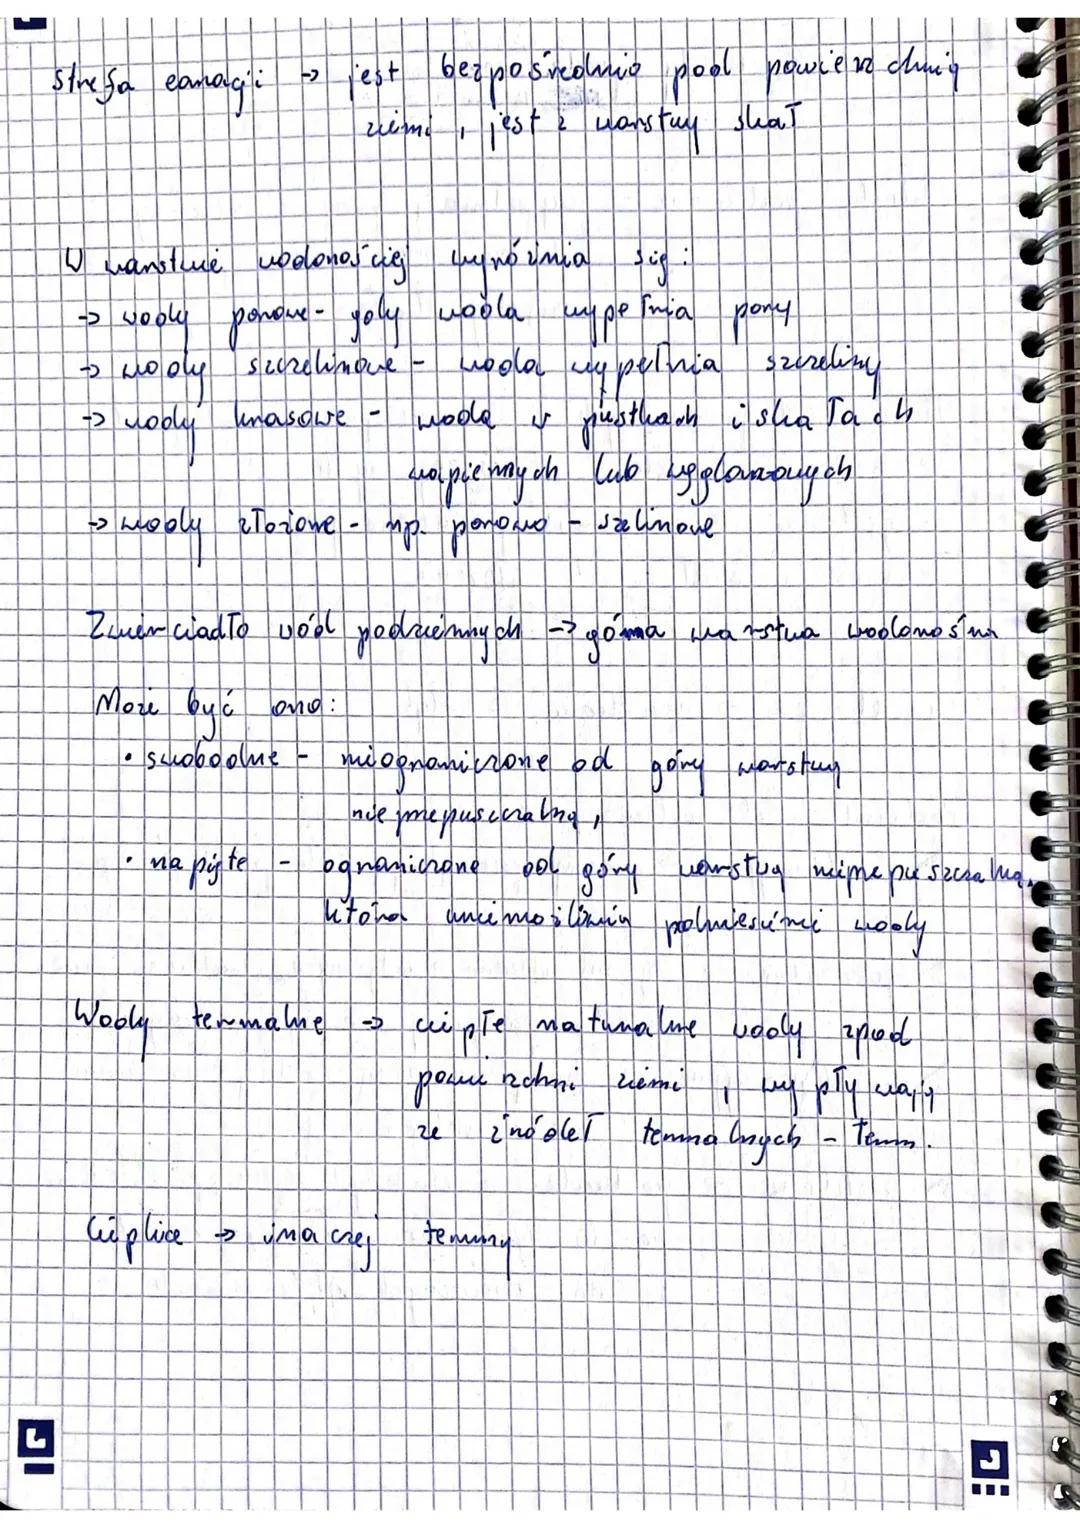 strefa earacji → jest bezpośrednio pod powierzchnią
ziemi, jest z warstwy skał
W warstwie wodonościej wyróżnia się:
→ wody porowe - gdy woda wypełnia pory
→ wody szczelinowe - woda wypełnia szczeliny
→ wody krasowe - woda w pustkach i skałach
wapiennych lub węglanowych
→ wody złożone - np. porowo - szelinowe
Zwierciadło wód podziemnych → górna warstwa wodonośna
Może być ono:
• swobodne - nieograniczone od góry warstwy
nieprzepuszczalną,
• napięte - ograniczone od góry warstwą nieprzepuszczalną,
która uniemożliwia podniesienie wody
Wody termalne → ciepłe naturalne wody spod
powierzchni ziemi, wypływają
ze źródeł termalnych - Term.
Cieplice → inaczej termy